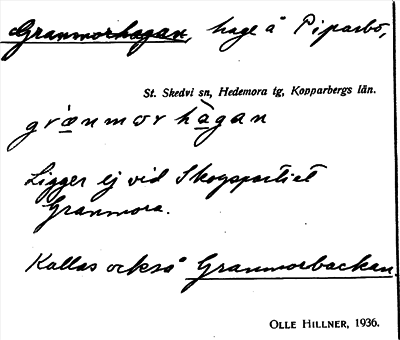 Granmorhagan, hage å Piparbo,
St. Skedvi sn, Hedemora tg, Kopparbergs län.
grànmor hàgan
Ligger ej vid Skogspartiet
Granmora.
Kallas också Granmorbackan.
OLLE HILLNER, 1936.